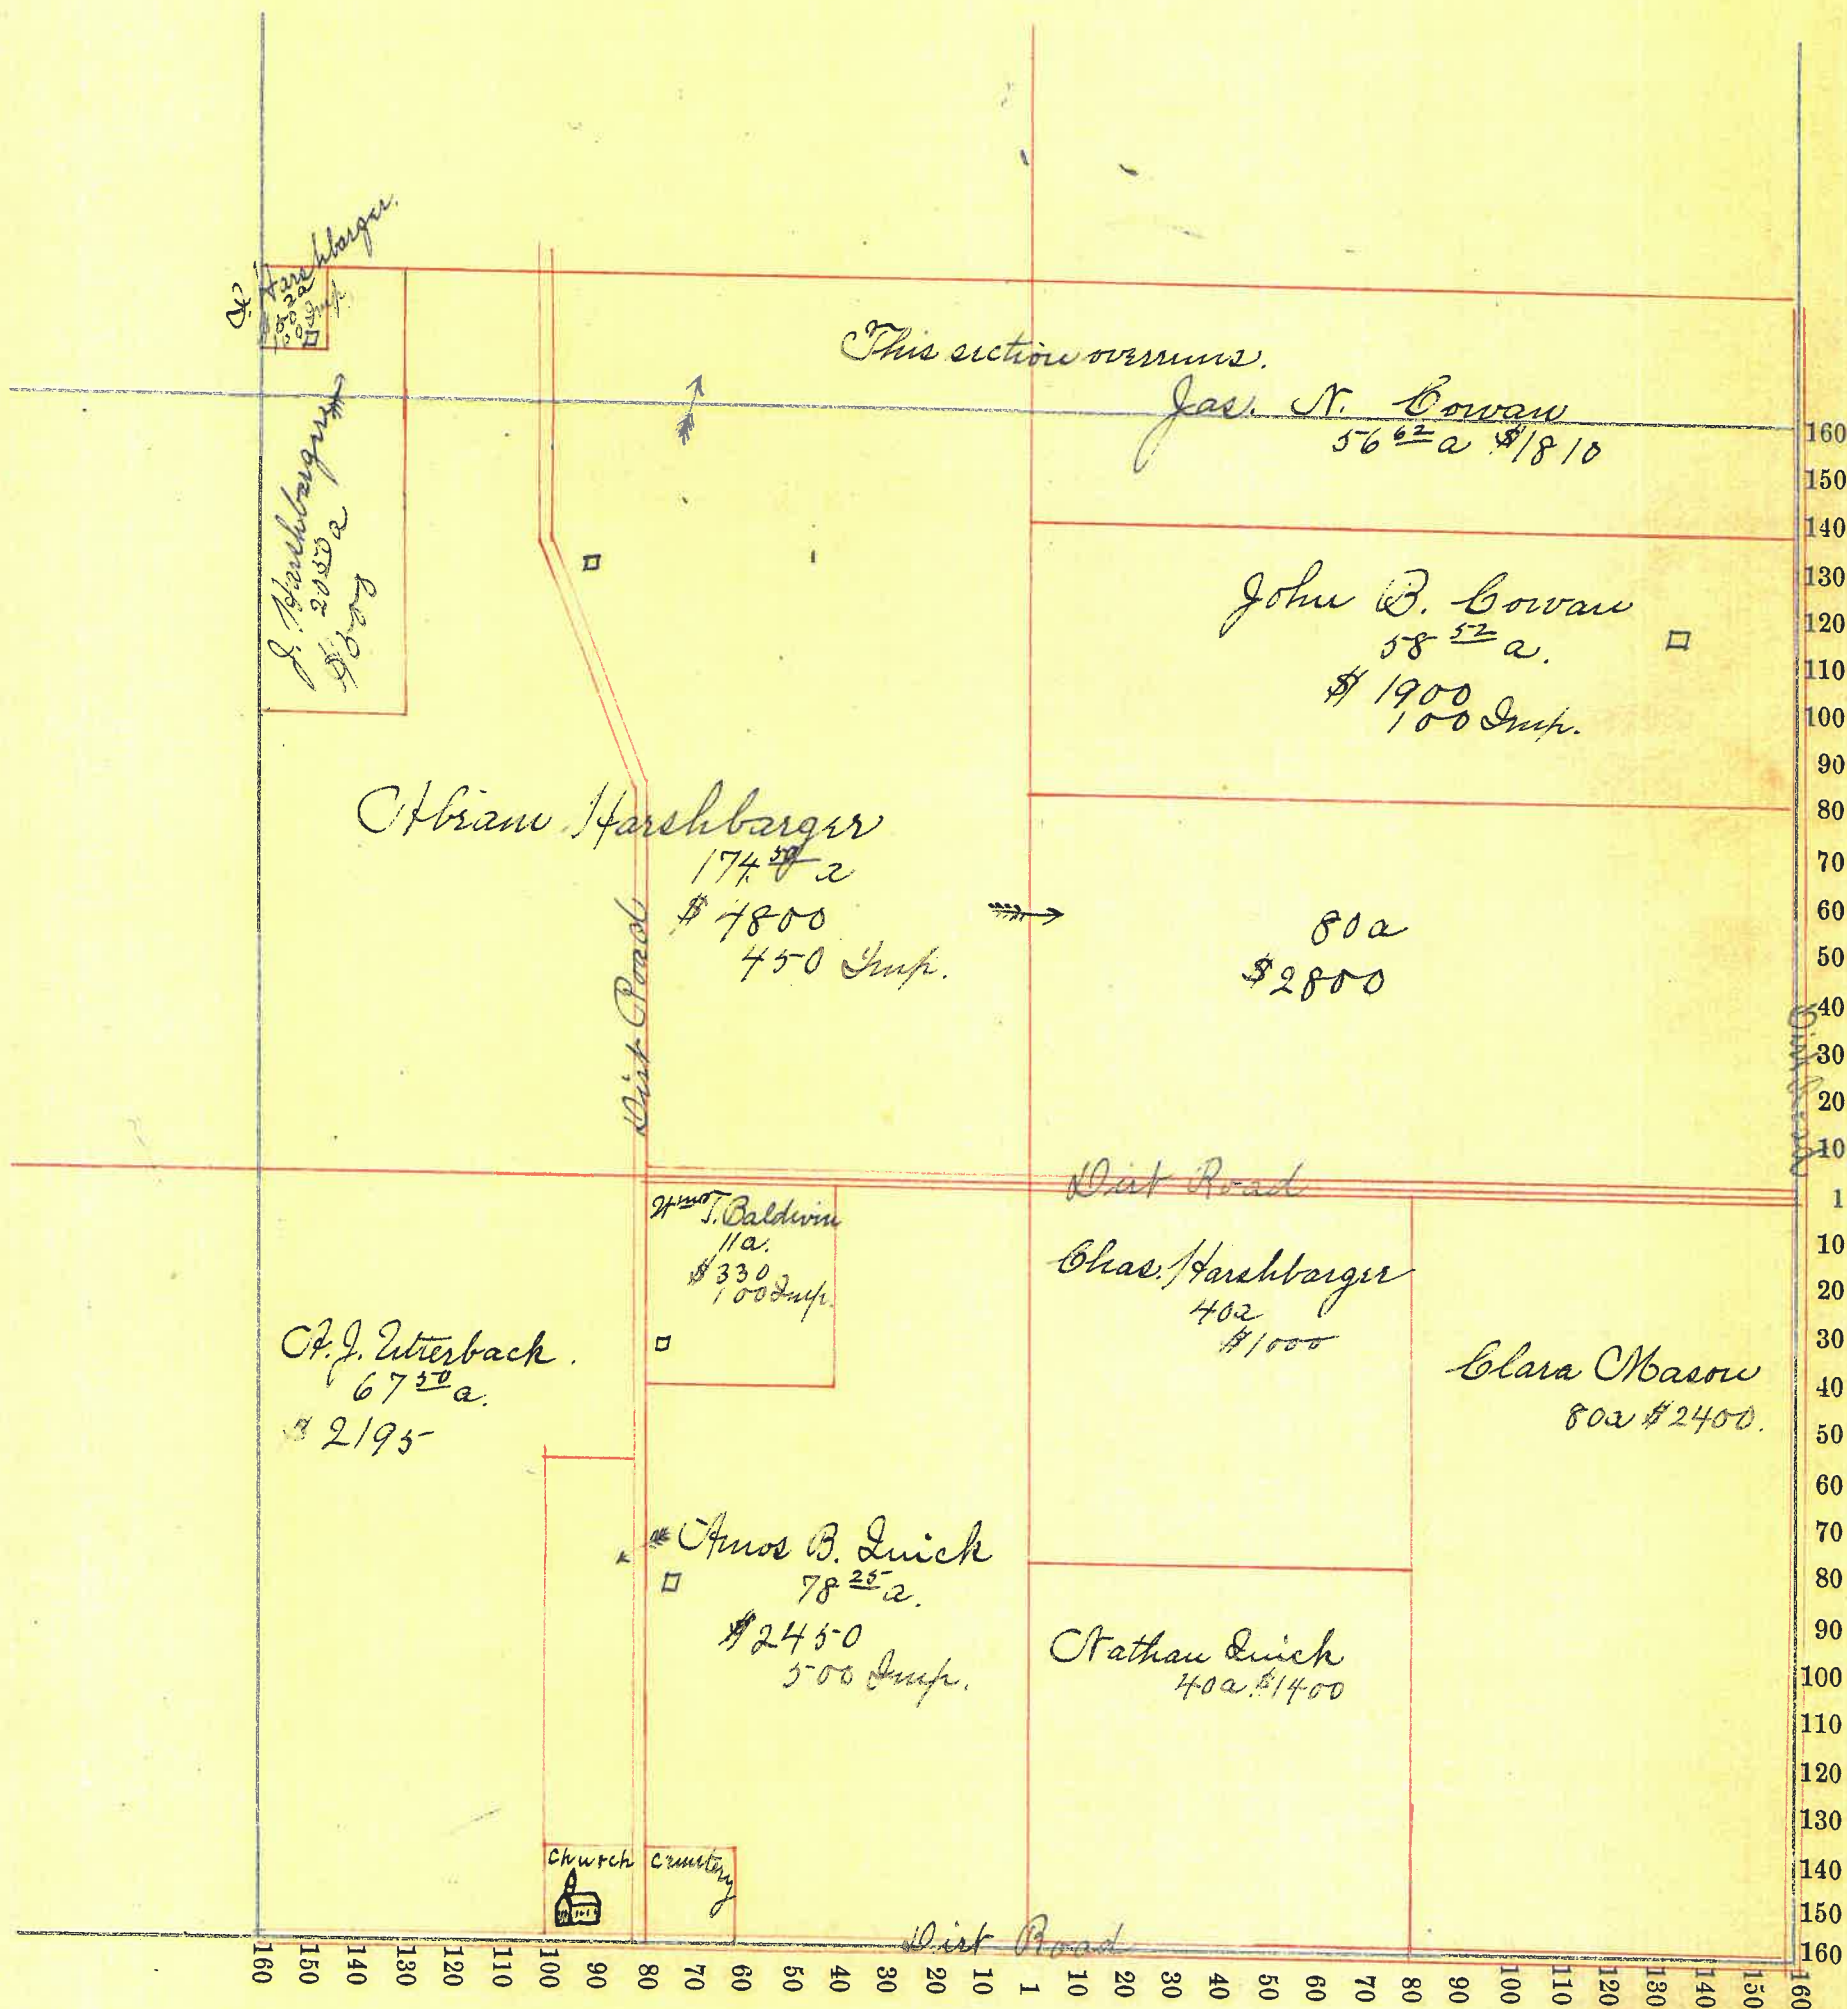 Harshbarger.
2a
100 Imp
This section overruns.
Jas. N. Cowan
56 62 a $1810
J. Harshbarger
20 50 a
$600
John B. Cowan
58 52 a.
$1900
100 Imp.
Abram Harshbarger
174 50 a
$4800
450 Imp.
80a
$2800
Dirt Road
Dirt Road
Wm T. Baldwin
11a.
$330
100 Imp.
Chas. Harshbarger
40a
$1000
A. J. Utterback.
67 50 a.
$2195
Clara Mason
80a $2400.
Amos B. Quick
78 25 a.
$2450
500 Imp.
Nathan Quick
40a. $1400
Church
Cemetery
Dirt Road
160
150
140
130
120
110
100
90
80
70
60
50
40
30
20
10
1
10
20
30
40
50
60
70
80
90
100
110
120
130
140
150
160
160 150 140 130 120 110 100 90 80 70 60 50 40 30 20 10 1 10 20 30 40 50 60 70 80 90 100 110 120 130 140 150 160